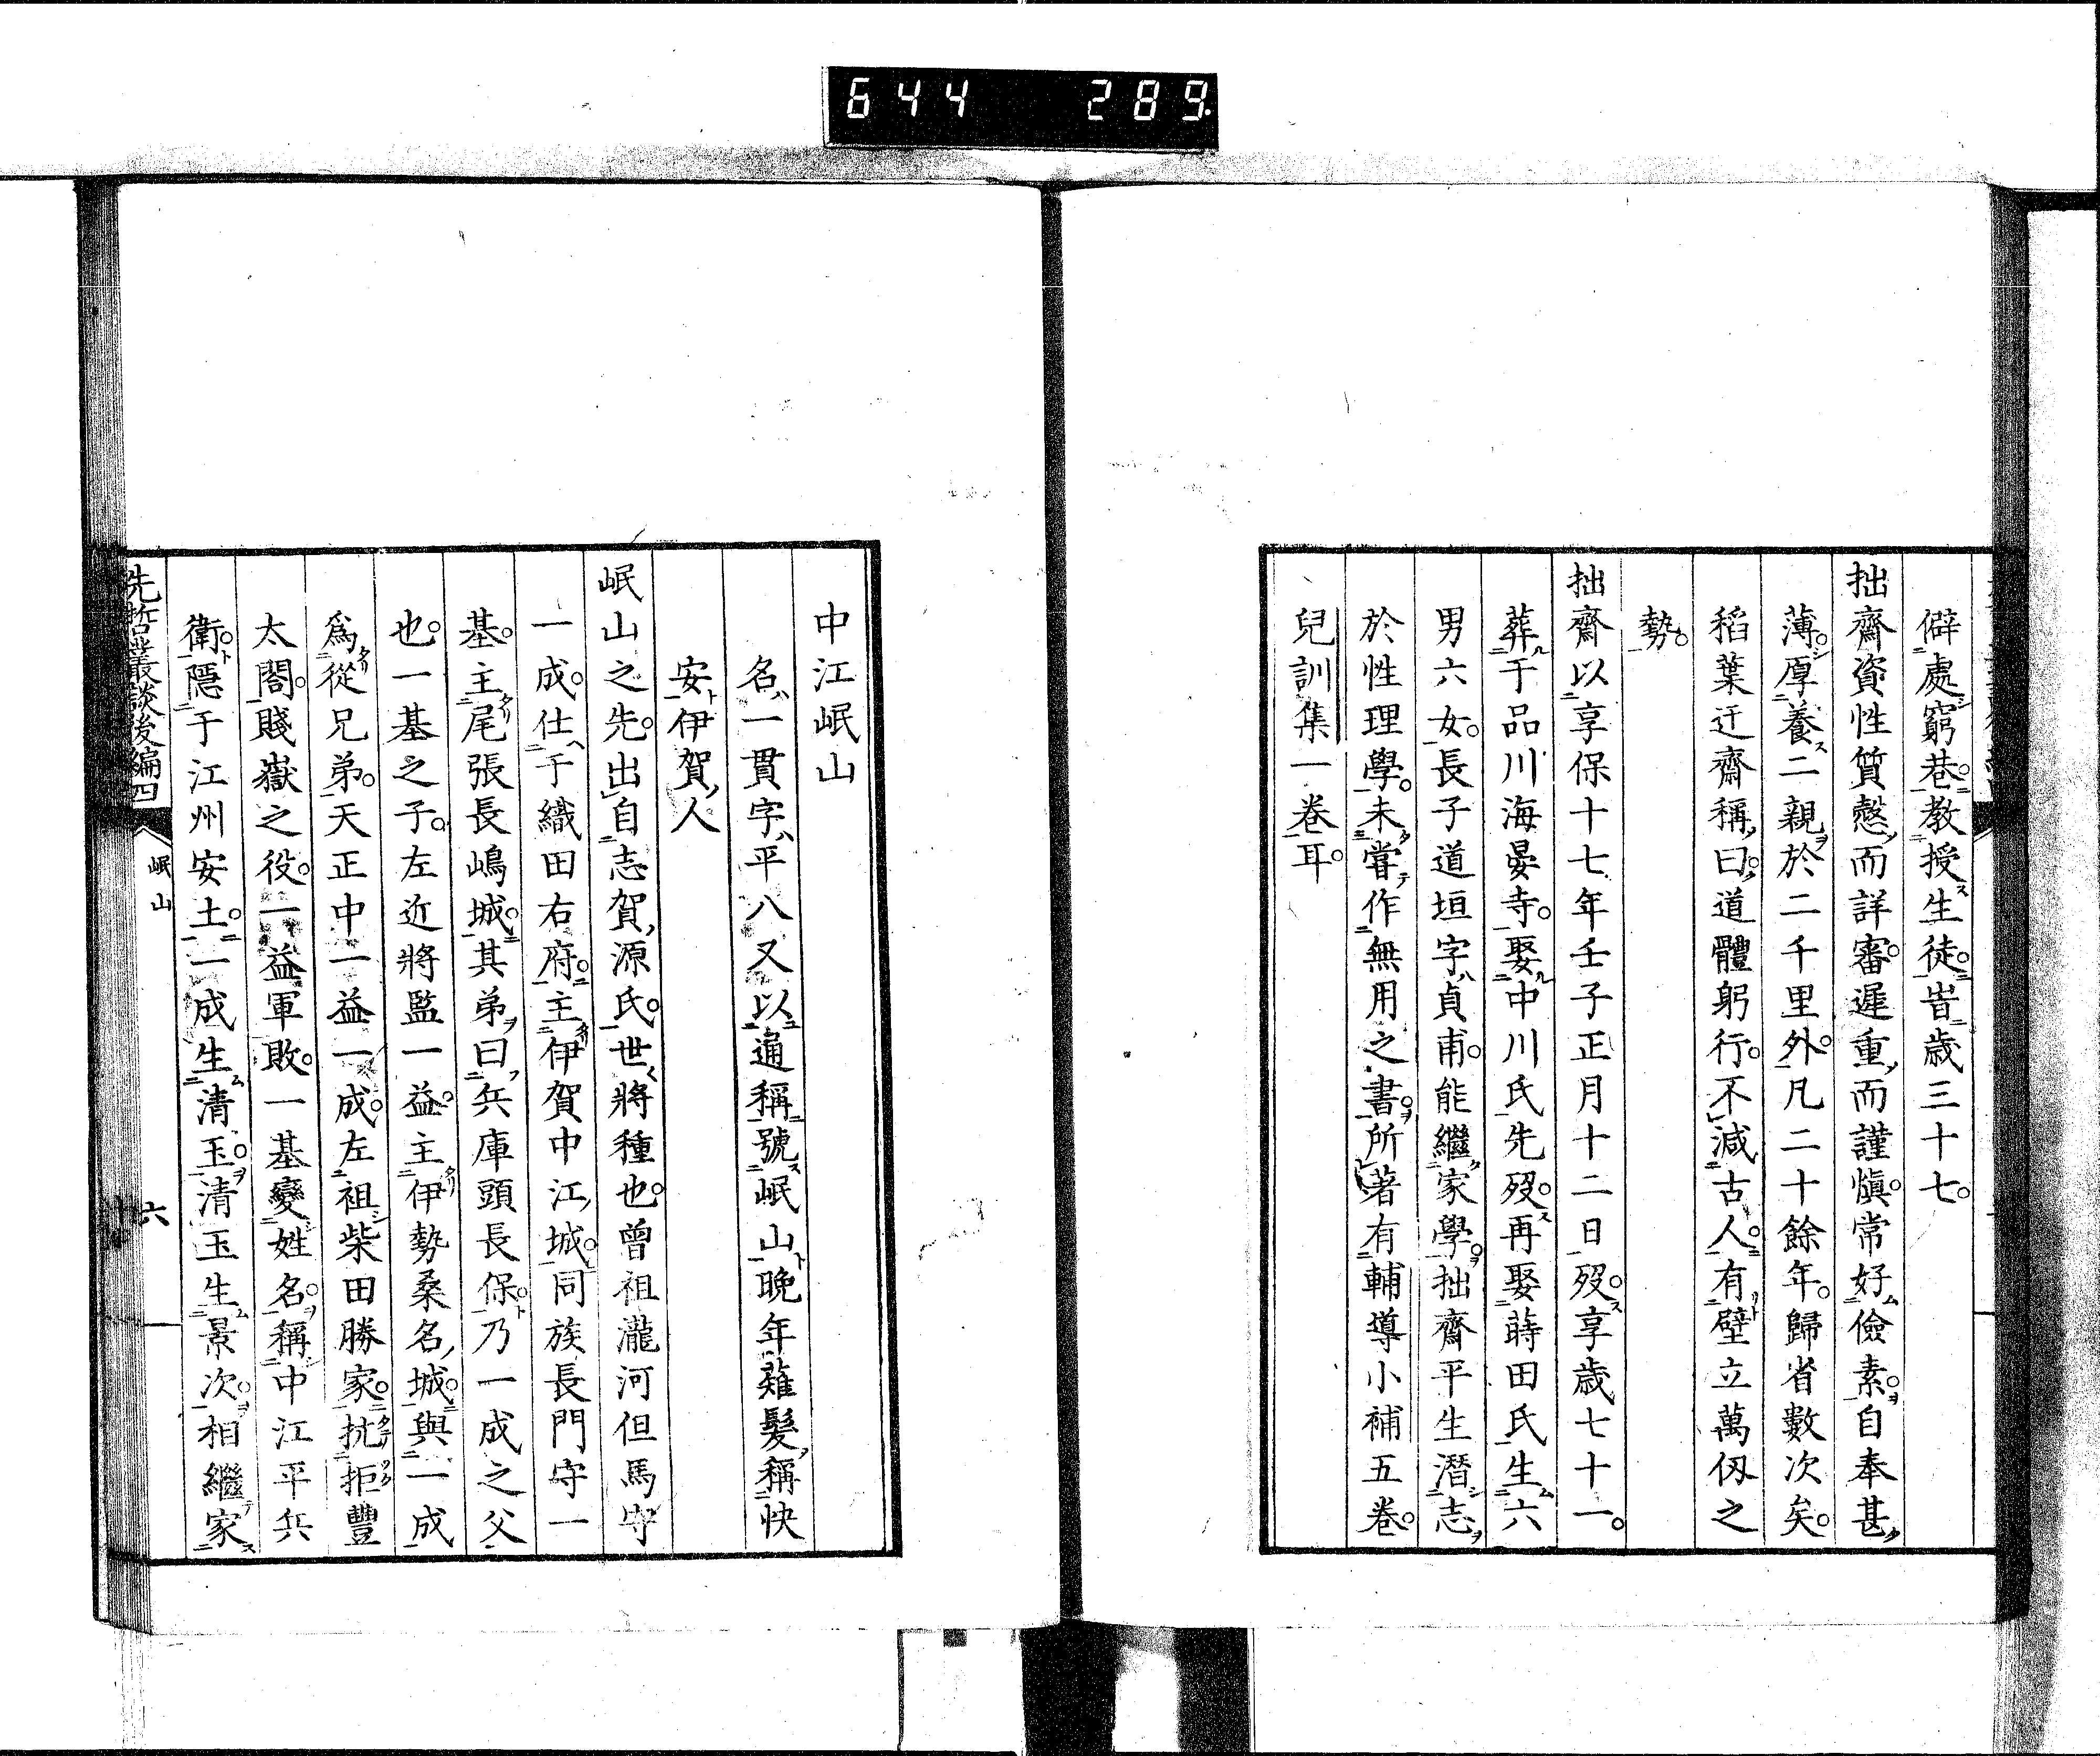 644 289
僻處窮巷。教授生徒。旹歲三十七。
拙齋資性質愨而詳審。遲重而謹愼。常好儉素。自奉甚
薄。厚養二親於二千里外。凡二十餘年。歸省數次矣。
稻葉迂齋稱曰。道體躬行。不減古人。有壁立萬仭之
勢。
拙齋以享保十七年壬子正月十二日歿。享歲七十一。
葬于品川海晏寺。娶中川氏先歿。再娶蒔田氏生六
男六女。長子道垣字貞甫。能繼家學。拙齋平生潛志
於性理學。未嘗作無用之書。所著有輔導小補五卷。
兒訓集一卷耳。
中江岷山
名一貫字平八又以通稱號岷山晚年薙髮稱快
安伊賀人
岷山之先。出自志賀源氏。世將種也。曾祖瀧河但馬守
一成。仕于織田右府。主伊賀中江城。同族長門守一
基。主尾張長嶋城。其弟曰兵庫頭長保。乃一成之父
也。一基之子。左近將監一益。主伊勢桑名城。與一成
爲從兄弟。天正中一益一成。左袒柴田勝家。抗拒豐
太閤。賤嶽之役。一益軍敗。一基變姓名。稱中江平兵
衛。隱于江州安土。一成生清玉。清玉生景次。相繼家
先哲叢談後編四
岷山
六